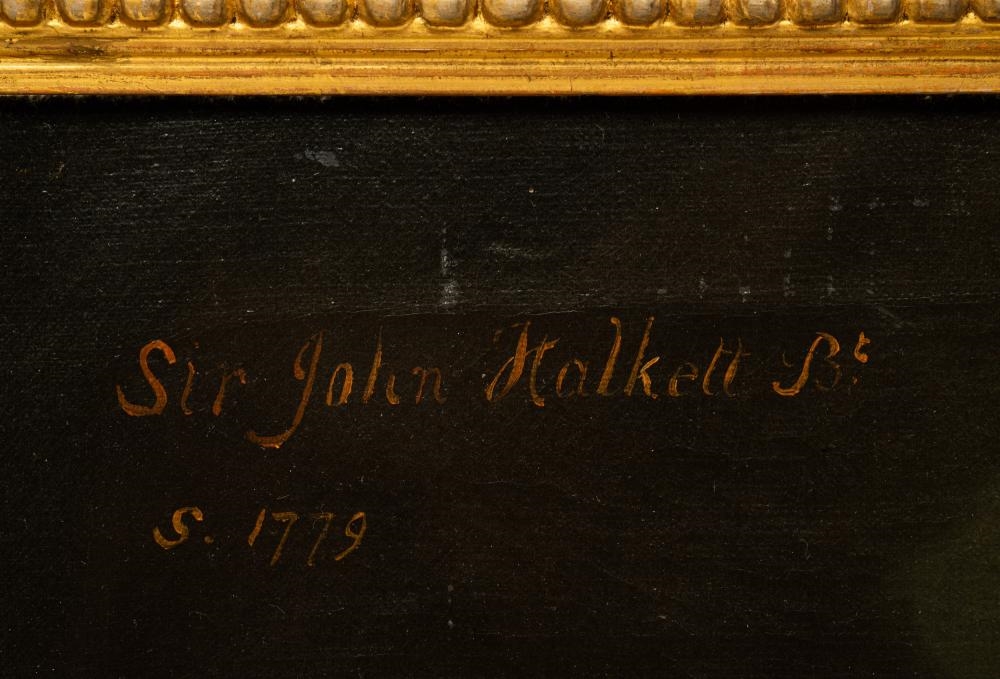 Sir John Halkett Bt.
S. 1779